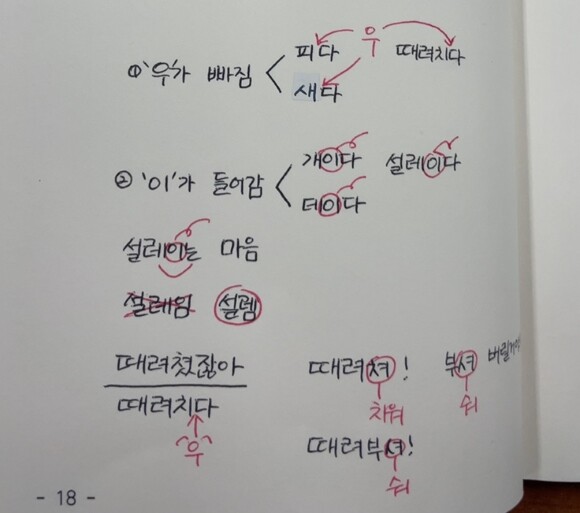 우
피다 때려치다
① '우'가 빠짐
새다
개이다 설레이다
② '이'가 들어감
데이다
설레이는 마음
설레임 설렘
때려쳤잖아 때려쳐! 부셔
때려치다 치워 숴
우 때려부셔!
숴
- 18 -